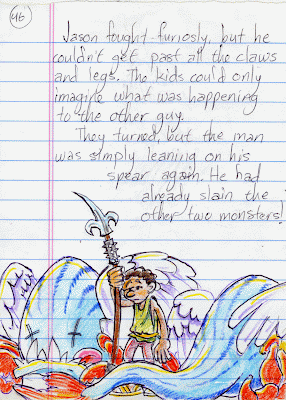 46
Jason fought furiosly, but he
couldn't get past all the claws
and legs. The kids could only
imagine what was happening
to the other guy.
They turned, but the man
was simply leaning on his
spear again. He had
already slain the
other two monsters!